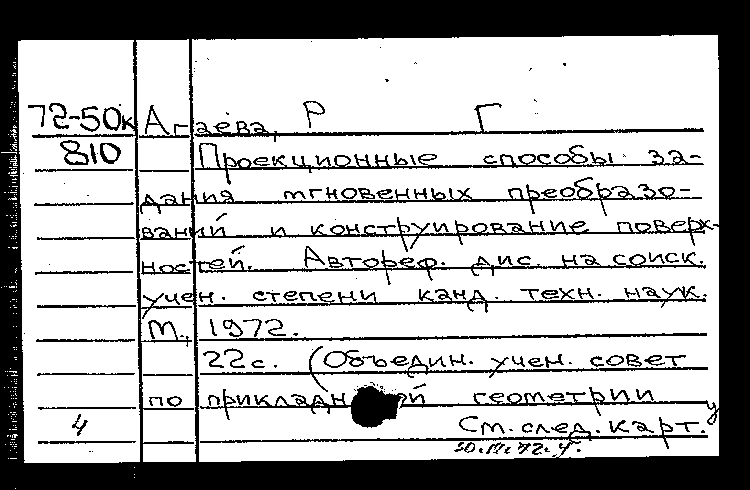 72-50к Агаева, Р Г
810 Проекционные способы за-
дания мгновенных преобразо-
ваний и конструирование поверх-
ностей. Автореф. дис. на соиск.
учен. степени канд. техн. наук.
М., 1972.
22с. (Объедин. учен. совет
по прикладной геометрии
4 См. след. карт.